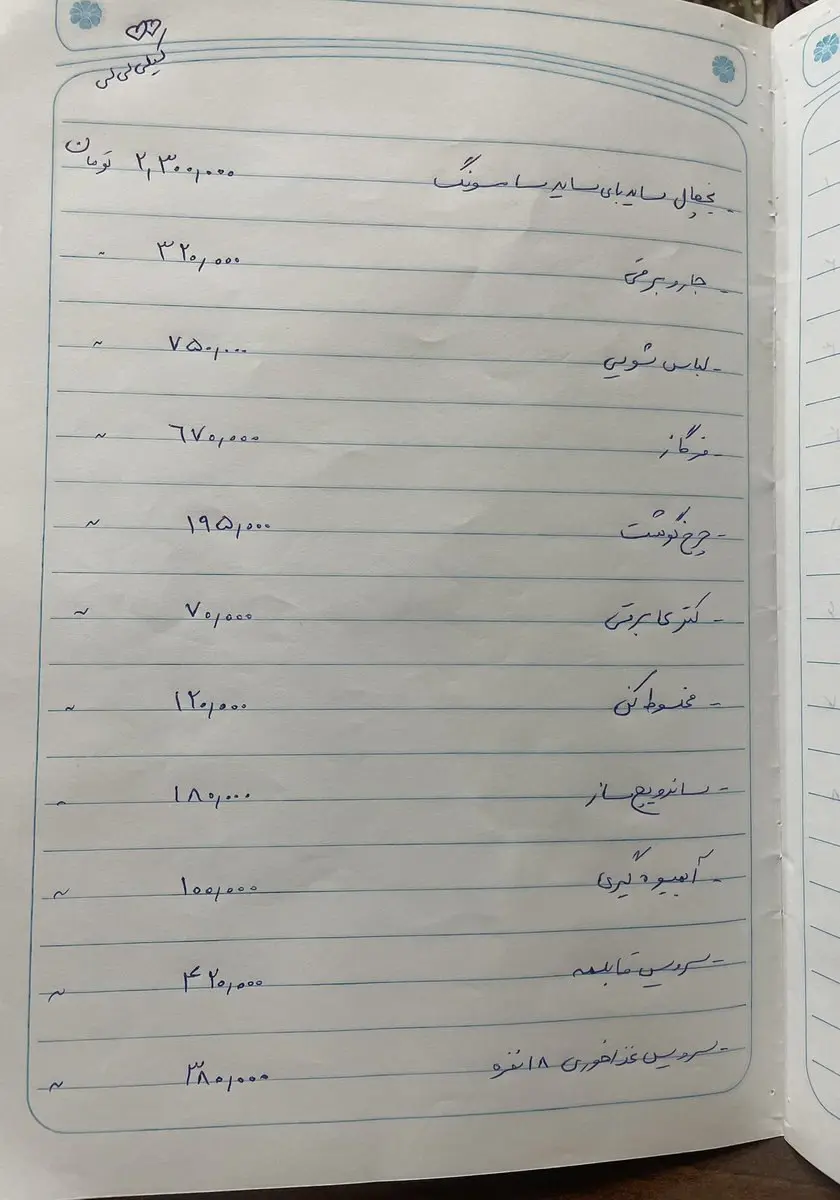 - یخچال ساید بای ساید سامسونگ ۲,۳۰۰,۰۰۰ تومان
- جاروبرقی ۳۲۰,۰۰۰ ~
- لباس شویی ۷۵۰,۰۰۰ ~
- فرگاز ۶۷۰,۰۰۰ ~
- چرخ گوشت ۱۹۵,۰۰۰ ~
- کتری برقی ۷۰,۰۰۰ ~
- مخلوط کن ۱۲۰,۰۰۰ ~
- ساندویچ ساز ۱۸۰,۰۰۰ ~
- آبمیوه گیری ۱۰۰,۰۰۰ ~
- سرویس قابلمه ۴۲۰,۰۰۰ ~
- سرویس غذاخوری ۱۸ نفره ۳۸۰,۰۰۰ ~